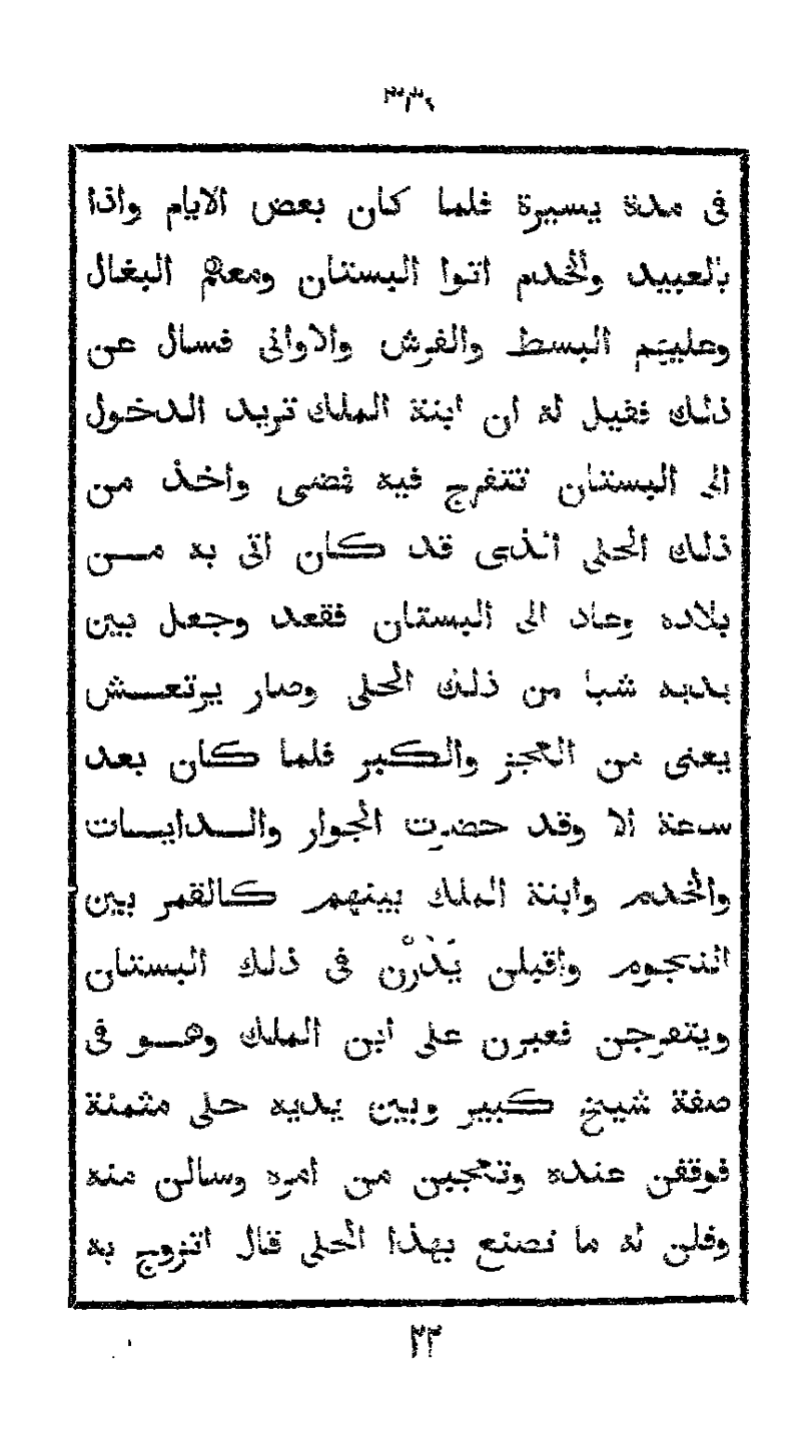 ٣٣٤
فى مدة يسيرة فلما كان بعض الايام واذا
بالعبيد والخدم اتوا البستان ومعهم البغال
وعليهم البسط والفرش والاوانى فسال عن
ذلك فقيل له ان ابنة الملك تريد الدخول
الى البستان تتفرج فيه فضى واخذ من
ذلك الحلى الذى قد كان اتى به مـن
بلاده وعاد الى البستان فقعد وجعل بين
يديه شيا من ذلك الحلى وصار يرتعـش
يعنى من العجز والكبر فلما كان بعد
سعة الا وقد حضرت الجوار والـدايـات
والخدم وابنة الملك بينهم كالقمر بين
النجوم واقبلن يَدُرْن فى ذلك البستان
ويتفرجن فعبرن على ابن الملك وهـو فى
صفة شيخ كبير وبين يديه حلى مثمنة
فوقفن عنده وتعجبن من امره وسالن منه
وقلن له ما تصنع بهذا الحلى قال اتزوج به
٢٢